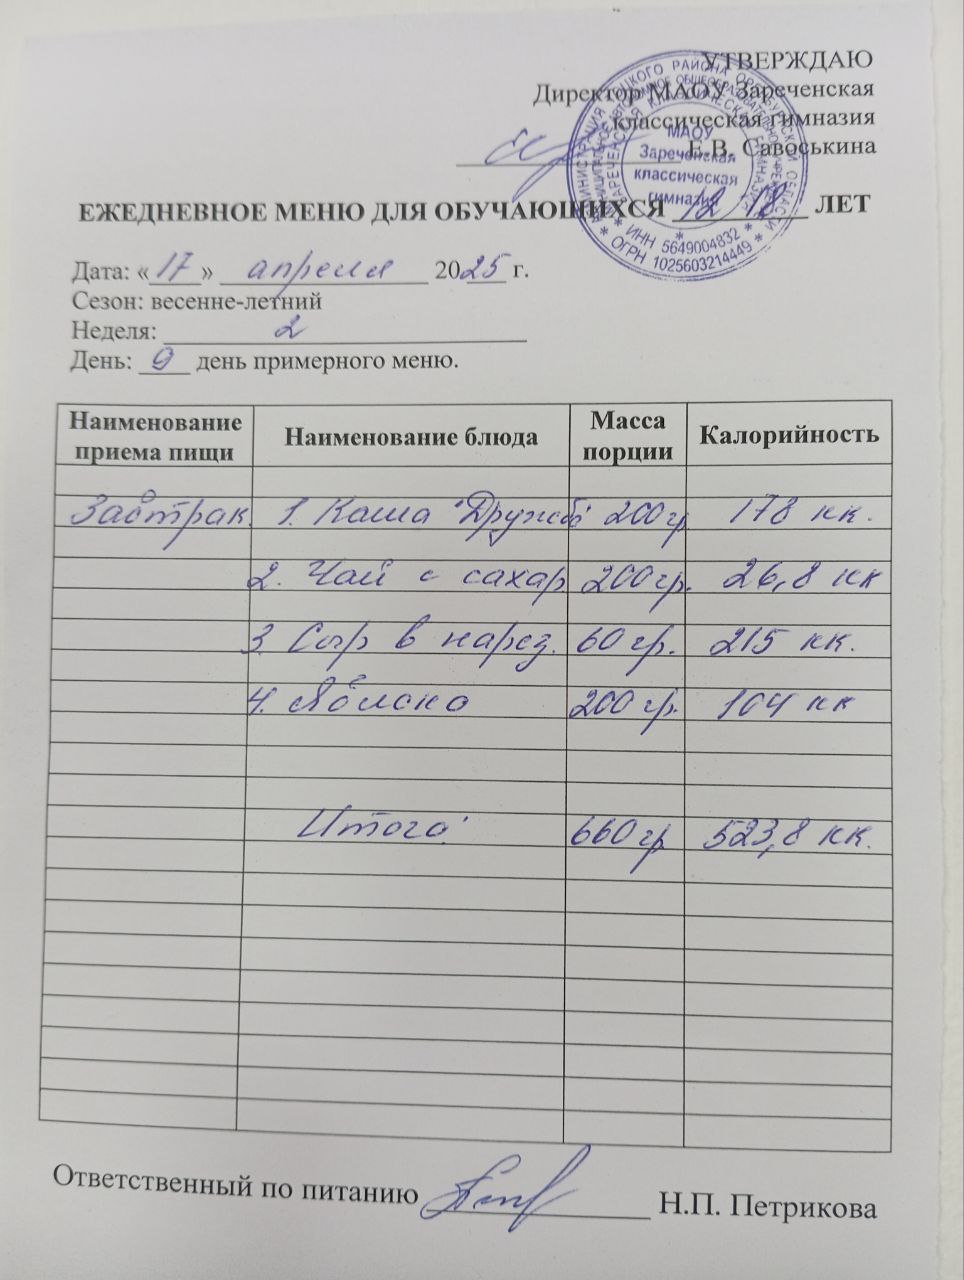 УТВЕРЖДАЮ
Директор МАОУ Зареченская
классическая гимназия
Е.В. Савоськина
МАОУ
Зареченская
классическая
гимназия
* ИНН 5649004832 *
* ОГРН 1025603214449 *
ЕЖЕДНЕВНОЕ МЕНЮ ДЛЯ ОБУЧАЮЩИХСЯ 12 18 ЛЕТ
Дата: «17» апреля 2025 г.
Сезон: весенне-летний
Неделя: 2
День: 9 день примерного меню.
Наименование приема пищи Наименование блюда Масса порции Калорийность
Завтрак 1. Каша "Дружб" 200 гр 178 кк.
2. Чай с сахар 200 гр. 26,8 кк
3. Сыр в нарез. 60 гр. 215 кк.
4. Яблоко 200 гр. 104 кк
Итого: 660 гр 523,8 кк.
Ответственный по питанию Н.П. Петрикова